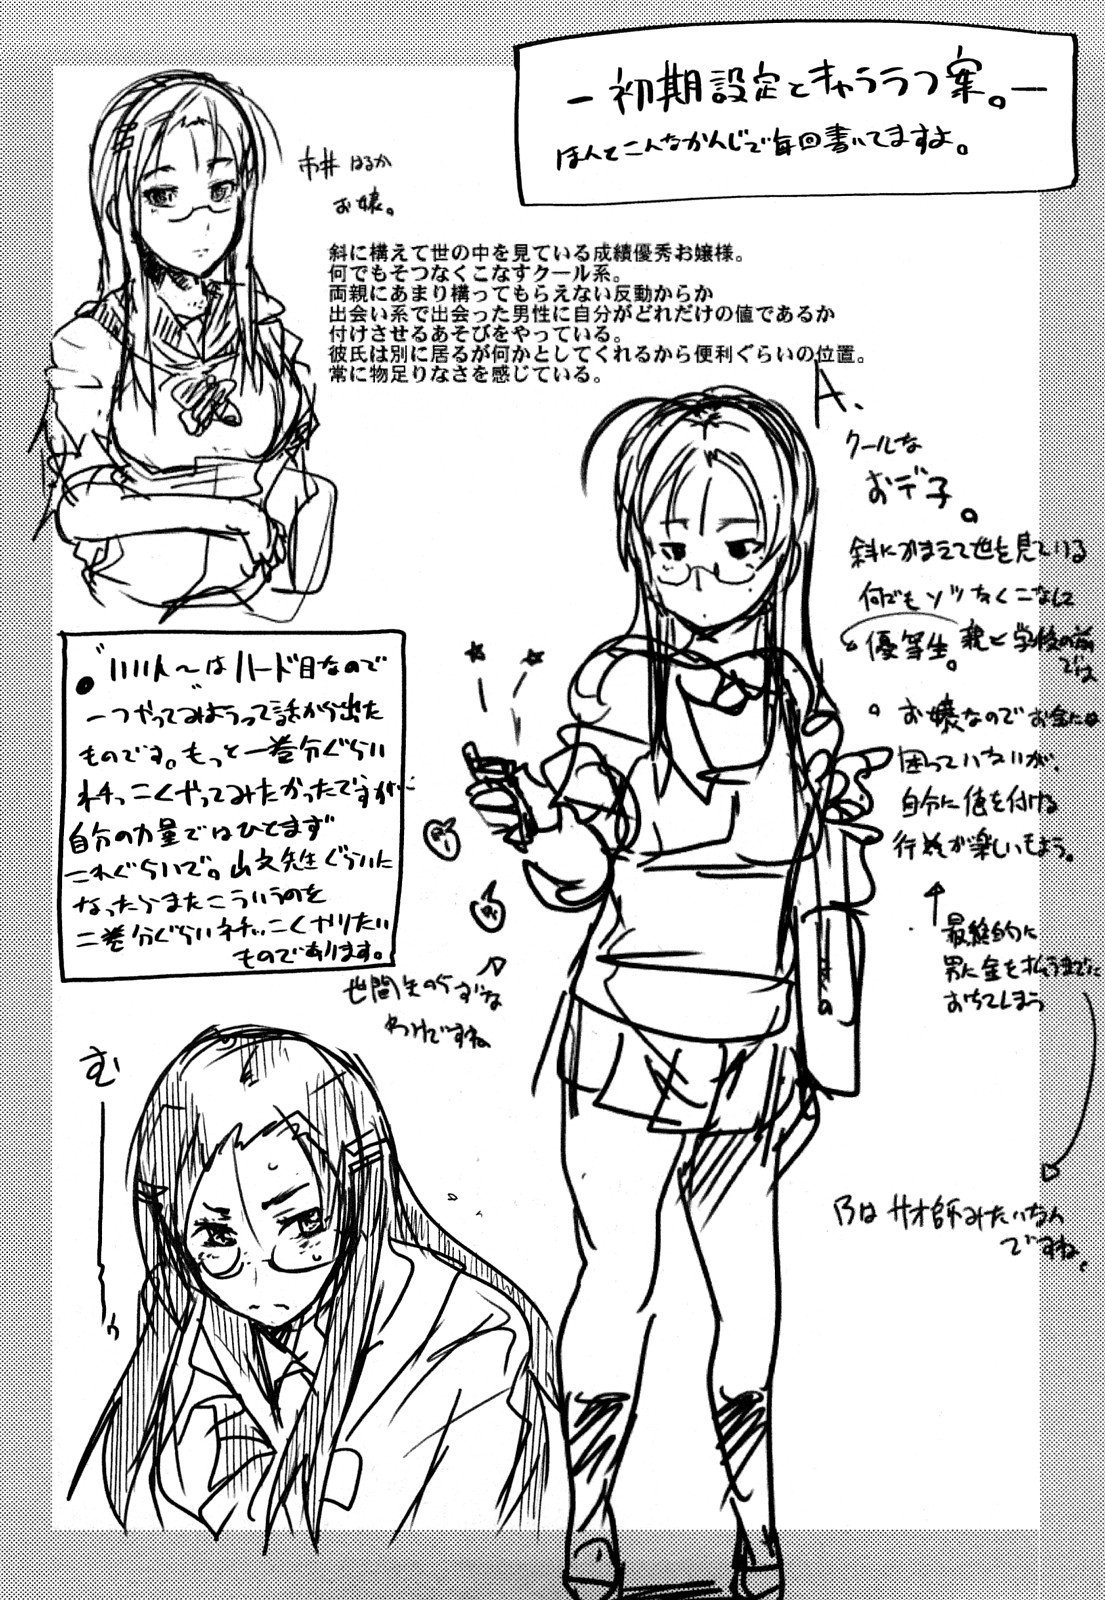 －初期設定とキャララフ案。－
ほんとこんなかんじで毎回書いてますよ。
市井 はるか
お嬢。
斜に構えて世の中を見ている成績優秀お嬢様。
何でもそつなくこなすクール系。
両親にあまり構ってもらえない反動からか
出会い系で出会った男性に自分がどれだけの値であるか
付けさせるあそびをやっている。
彼氏は別に居るが何かとしてくれるから便利ぐらいの位置。
常に物足りなさを感じている。
A.
クールな
おデ子。
斜にかまえて世を見ている
何でもソツなくこなして
優等生。親と学校の前
では
お嬢なのでお金には
困っていないが、
自分に値を付ける
行為が楽しいもよう。
↑
最終的に
男に金を払うまでに
おちてしまう
乃は サオ師みたいなもん
ですね。
"いい人～"はハード目なので
一つやってみようって話から出た
ものです。もっと一巻分ぐらい
ネチっこくやってみたかったですが
自分の力量ではひとまず
これぐらいで。山文先生ぐらいに
なったらまたこういうのを
二巻分ぐらいネチっこくやりたい
ものであります。
世間知らずな
わけですね
む
う